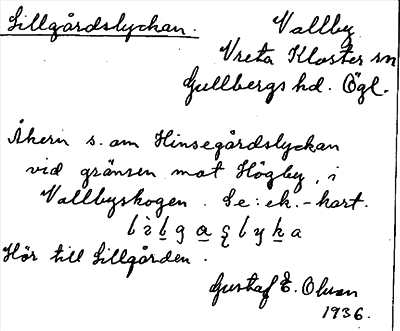 Lillgårdslyckan.
Vallby
Vreta Kloster sn
Gullbergs hd. Ögl.
Åkern s. om Hinsegårdslyckan
vid gränsen mot Högby, i
Vallbyskogen. Se: ek.-kart.
Hör till Lillgården.
Gustaf E. Olsson
1936.